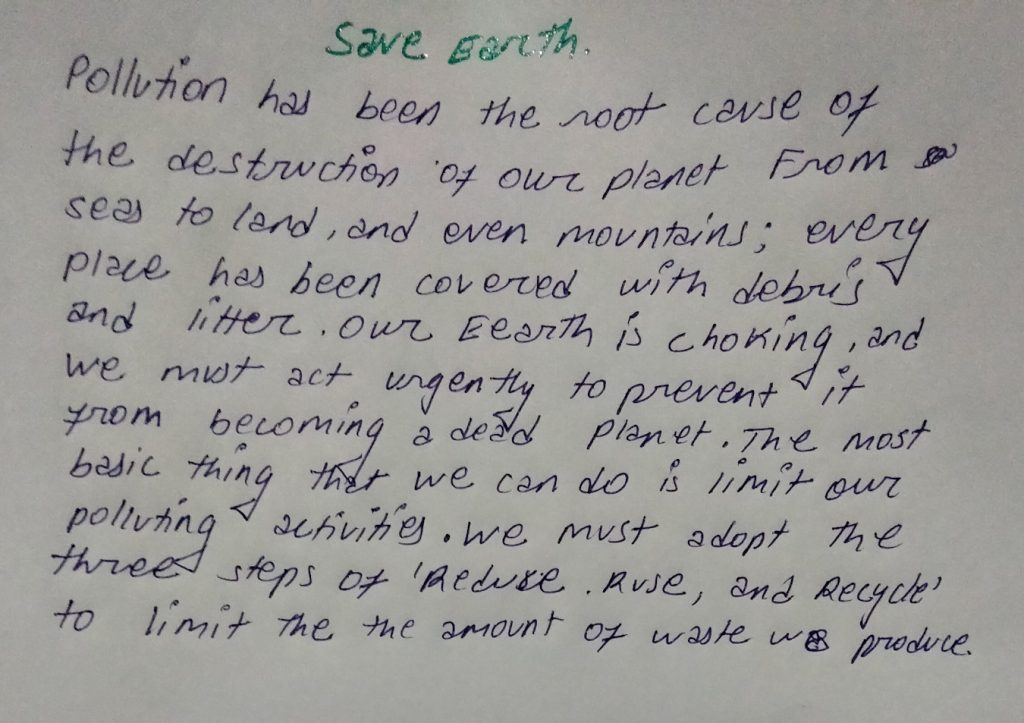 Save Earth.
Pollution has been the root cause of
the destruction of our planet From
seas to land, and even mountains; every
place has been covered with debris
and litter. Our Eearth is choking, and
we must act urgently to prevent it
from becoming a dead planet. The most
basic thing that we can do is limit our
polluting activities. We must adopt the
three steps of 'Reduse. Ruse, and Recycle'
to limit the the amount of waste we produce.